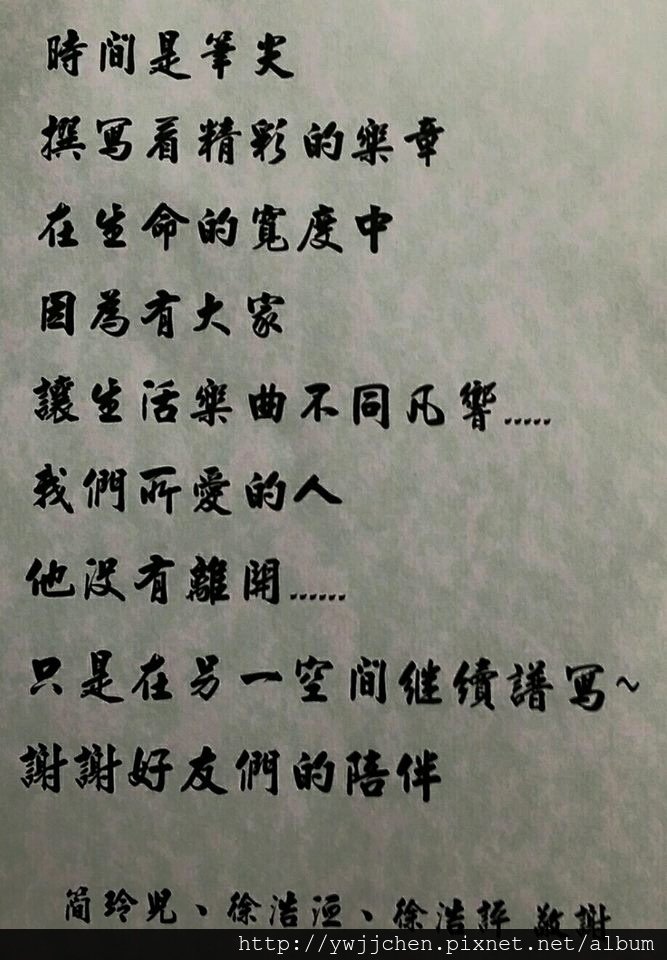 時間是筆尖
撰寫着精彩的樂章
在生命的寬度中
因為有大家
讓生活樂曲不同凡響.....
我們所愛的人
他没有離開......
只是在另一空間继續譜寫~
謝謝好友們的陪伴
简玲兒、徐浩洹、徐浩評 敬謝
http://ywjjchen.pixnet.net/album